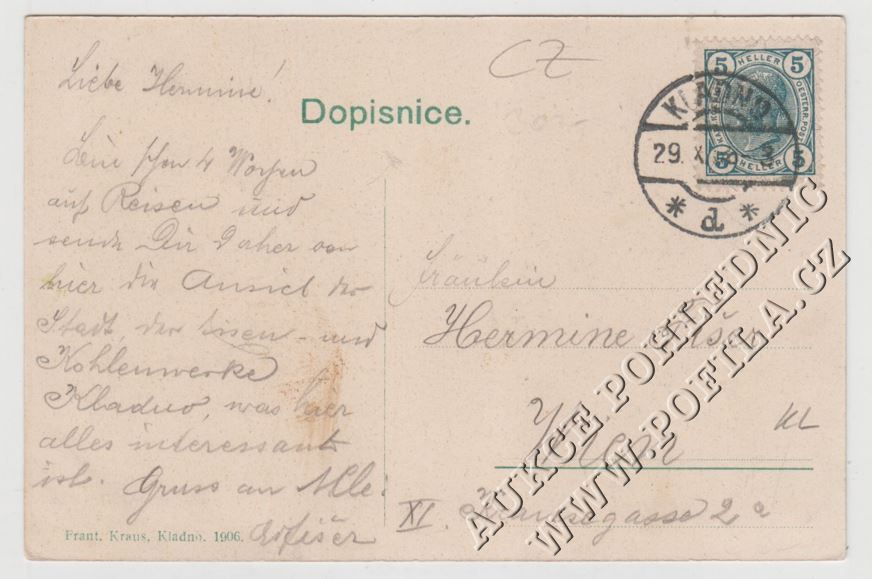 Liebe Hermine!
CZ
Dopisnice.
5 HELLER 5
OESTERR. POST
5 HELLER 5
KLADNO
29. X.
* d *
Bin schon 4 Wochen
auf Reisen und
sende Dir daher von
hier die Ansicht der
Stadt, der Eisen- und
Kohlenwerke
Kladno, was hier
alles interessant
ist. Gruss an Alle.
Fräulein
Hermine Fišer
Wien
KL
XI.
gasse 2a
Frant. Kraus, Kladno. 1906.
Fišer
AUKCE POHLEDNIC
WWW.POFILA.CZ